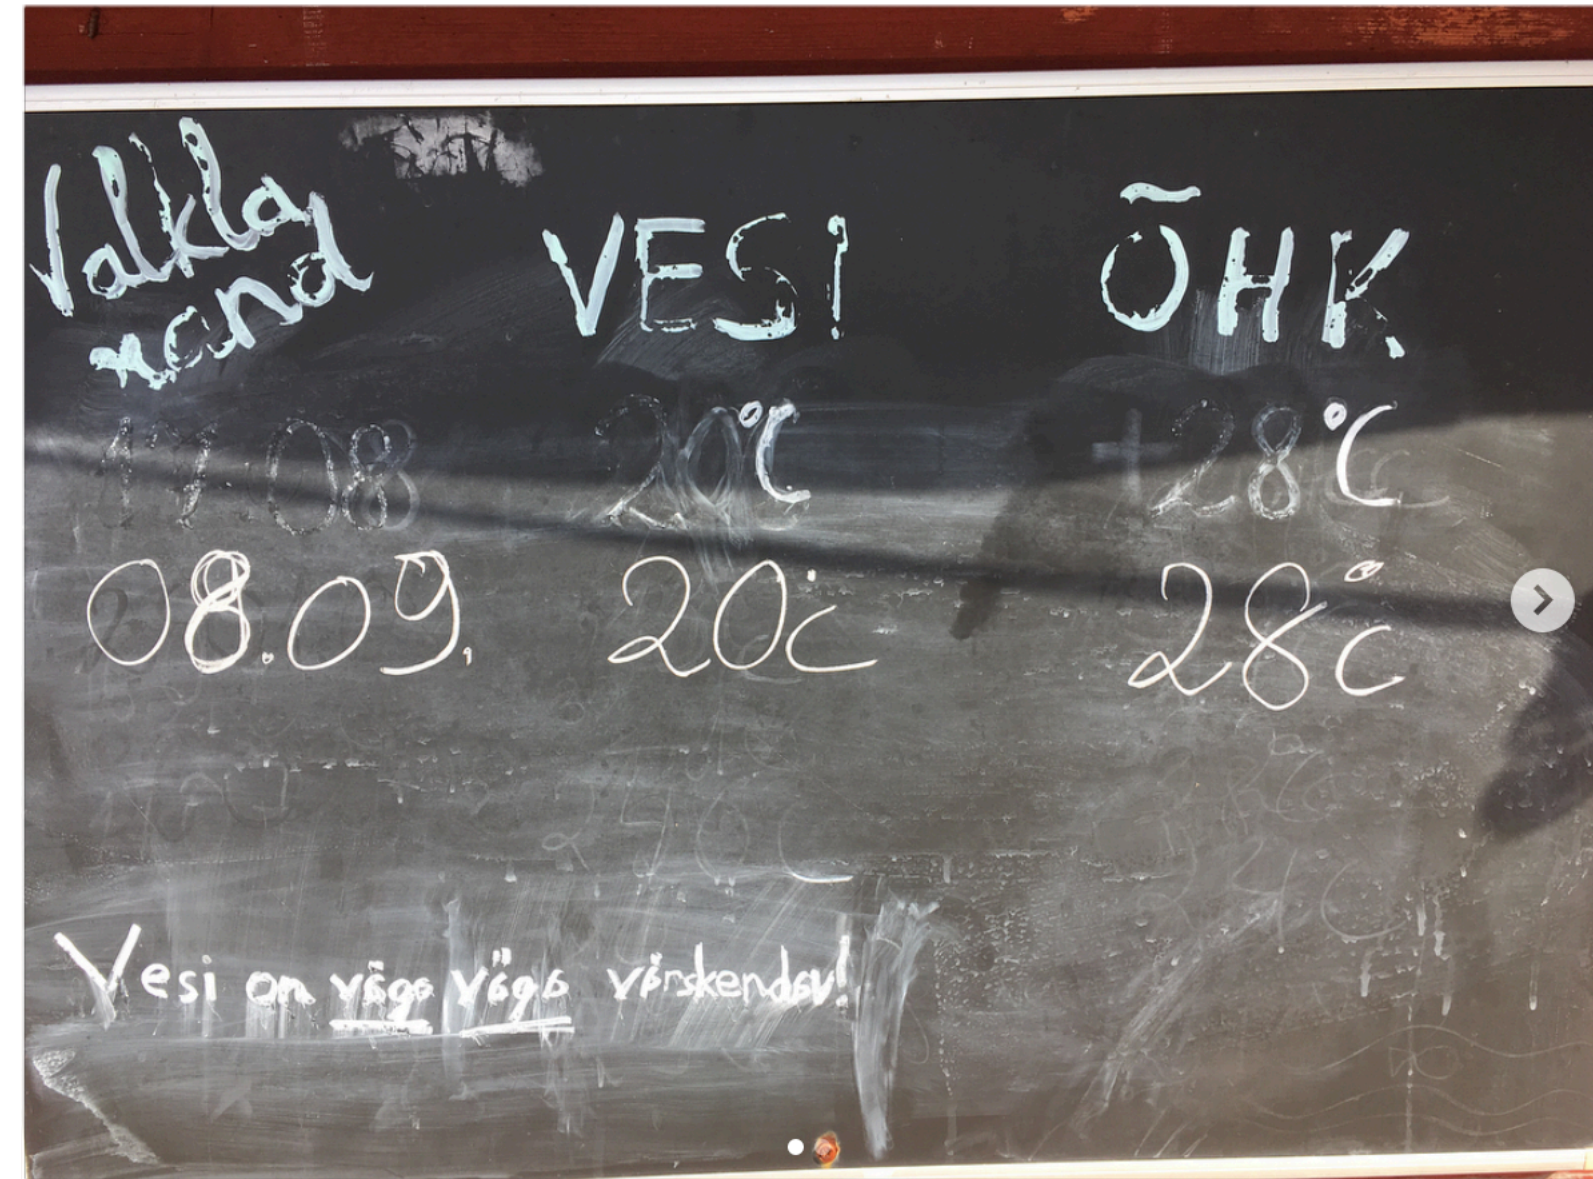 Valkla
rand
VESI
ÕHK
17.08 20°C +28°C
08.09. 20°C 28°C
Vesi on väga väga värskendav!